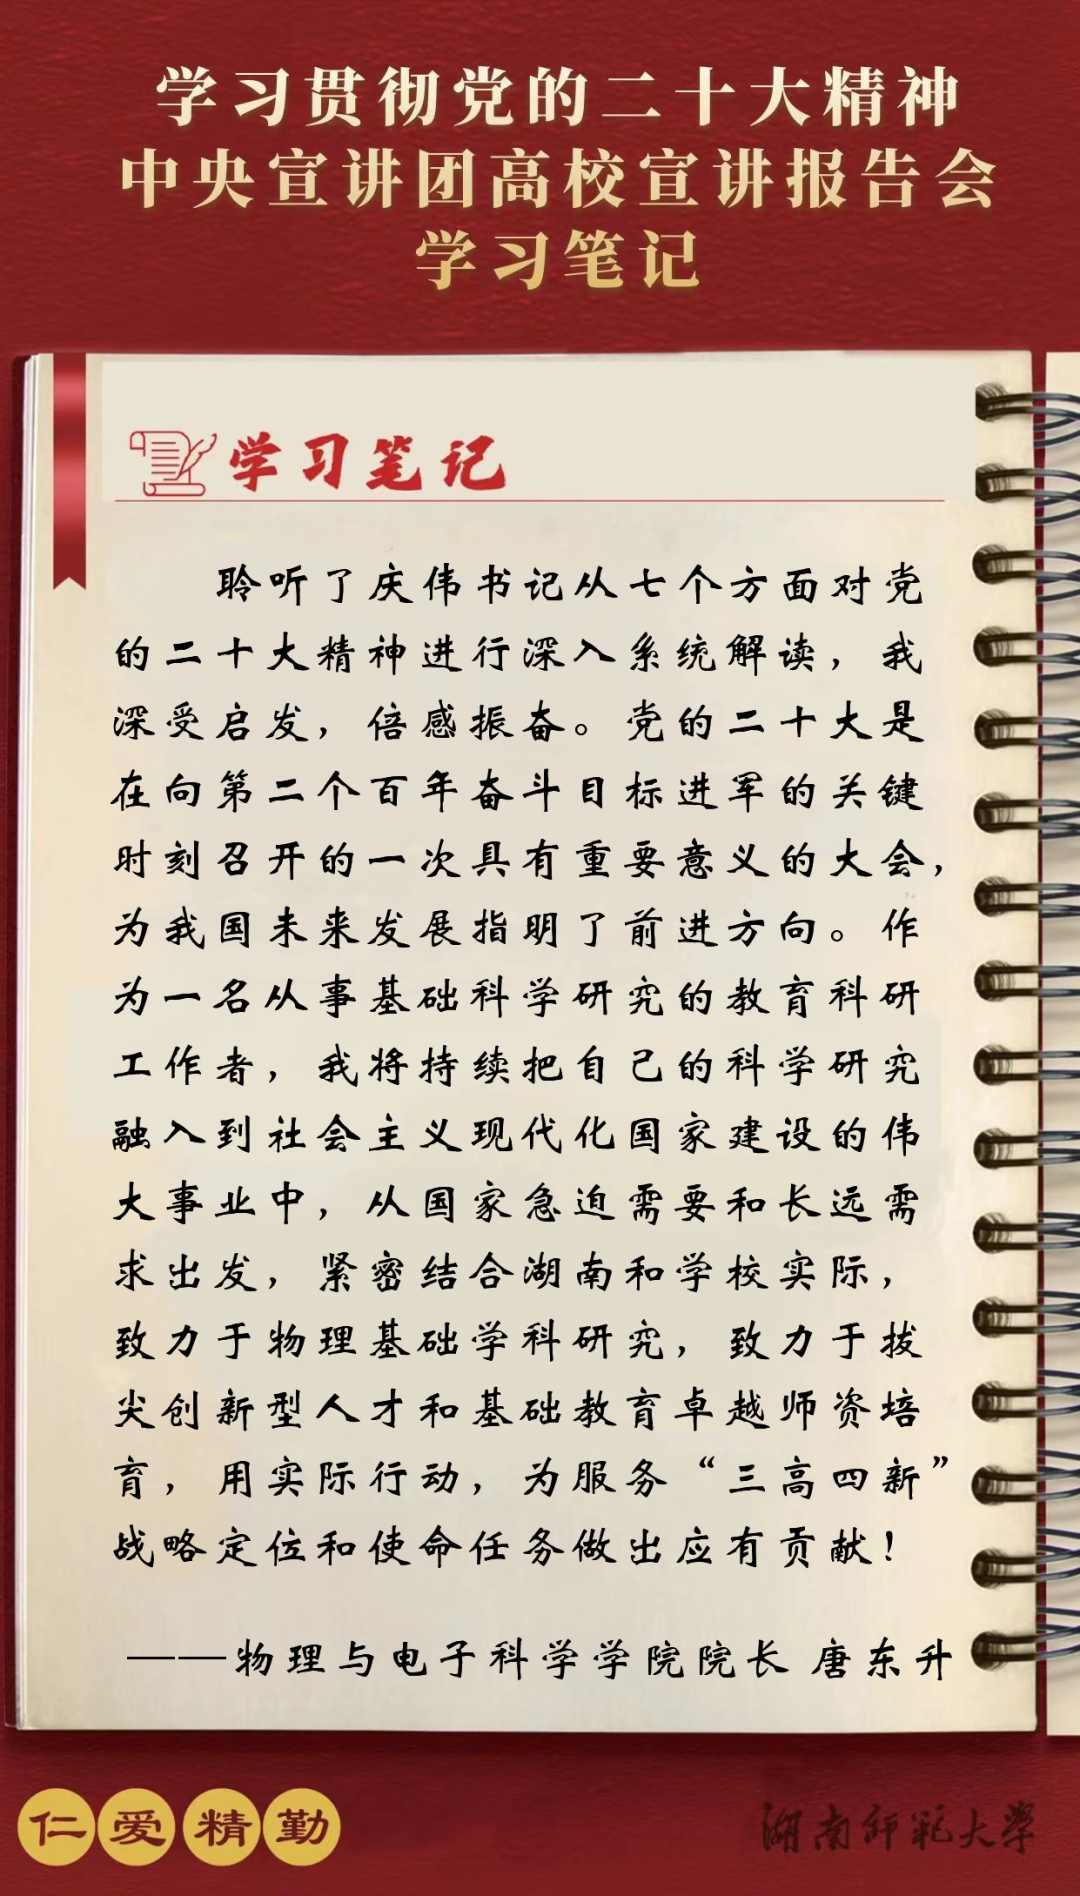 学习贯彻党的二十大精神
中央宣讲团高校宣讲报告会
学习笔记
学习笔记
聆听了庆伟书记从七个方面对党
的二十大精神进行深入系统解读，我
深受启发，倍感振奋。党的二十大是
在向第二个百年奋斗目标进军的关键
时刻召开的一次具有重要意义的大会，
为我国未来发展指明了前进方向。作
为一名从事基础科学研究的教育科研
工作者，我将持续把自己的科学研究
融入到社会主义现代化国家建设的伟
大事业中，从国家急迫需要和长远需
求出发，紧密结合湖南和学校实际，
致力于物理基础学科研究，致力于拔
尖创新型人才和基础教育卓越师资培
育，用实际行动，为服务“三高四新”
战略定位和使命任务做出应有贡献！
——物理与电子科学学院院长 唐东升
仁爱精勤
湖南师范大学